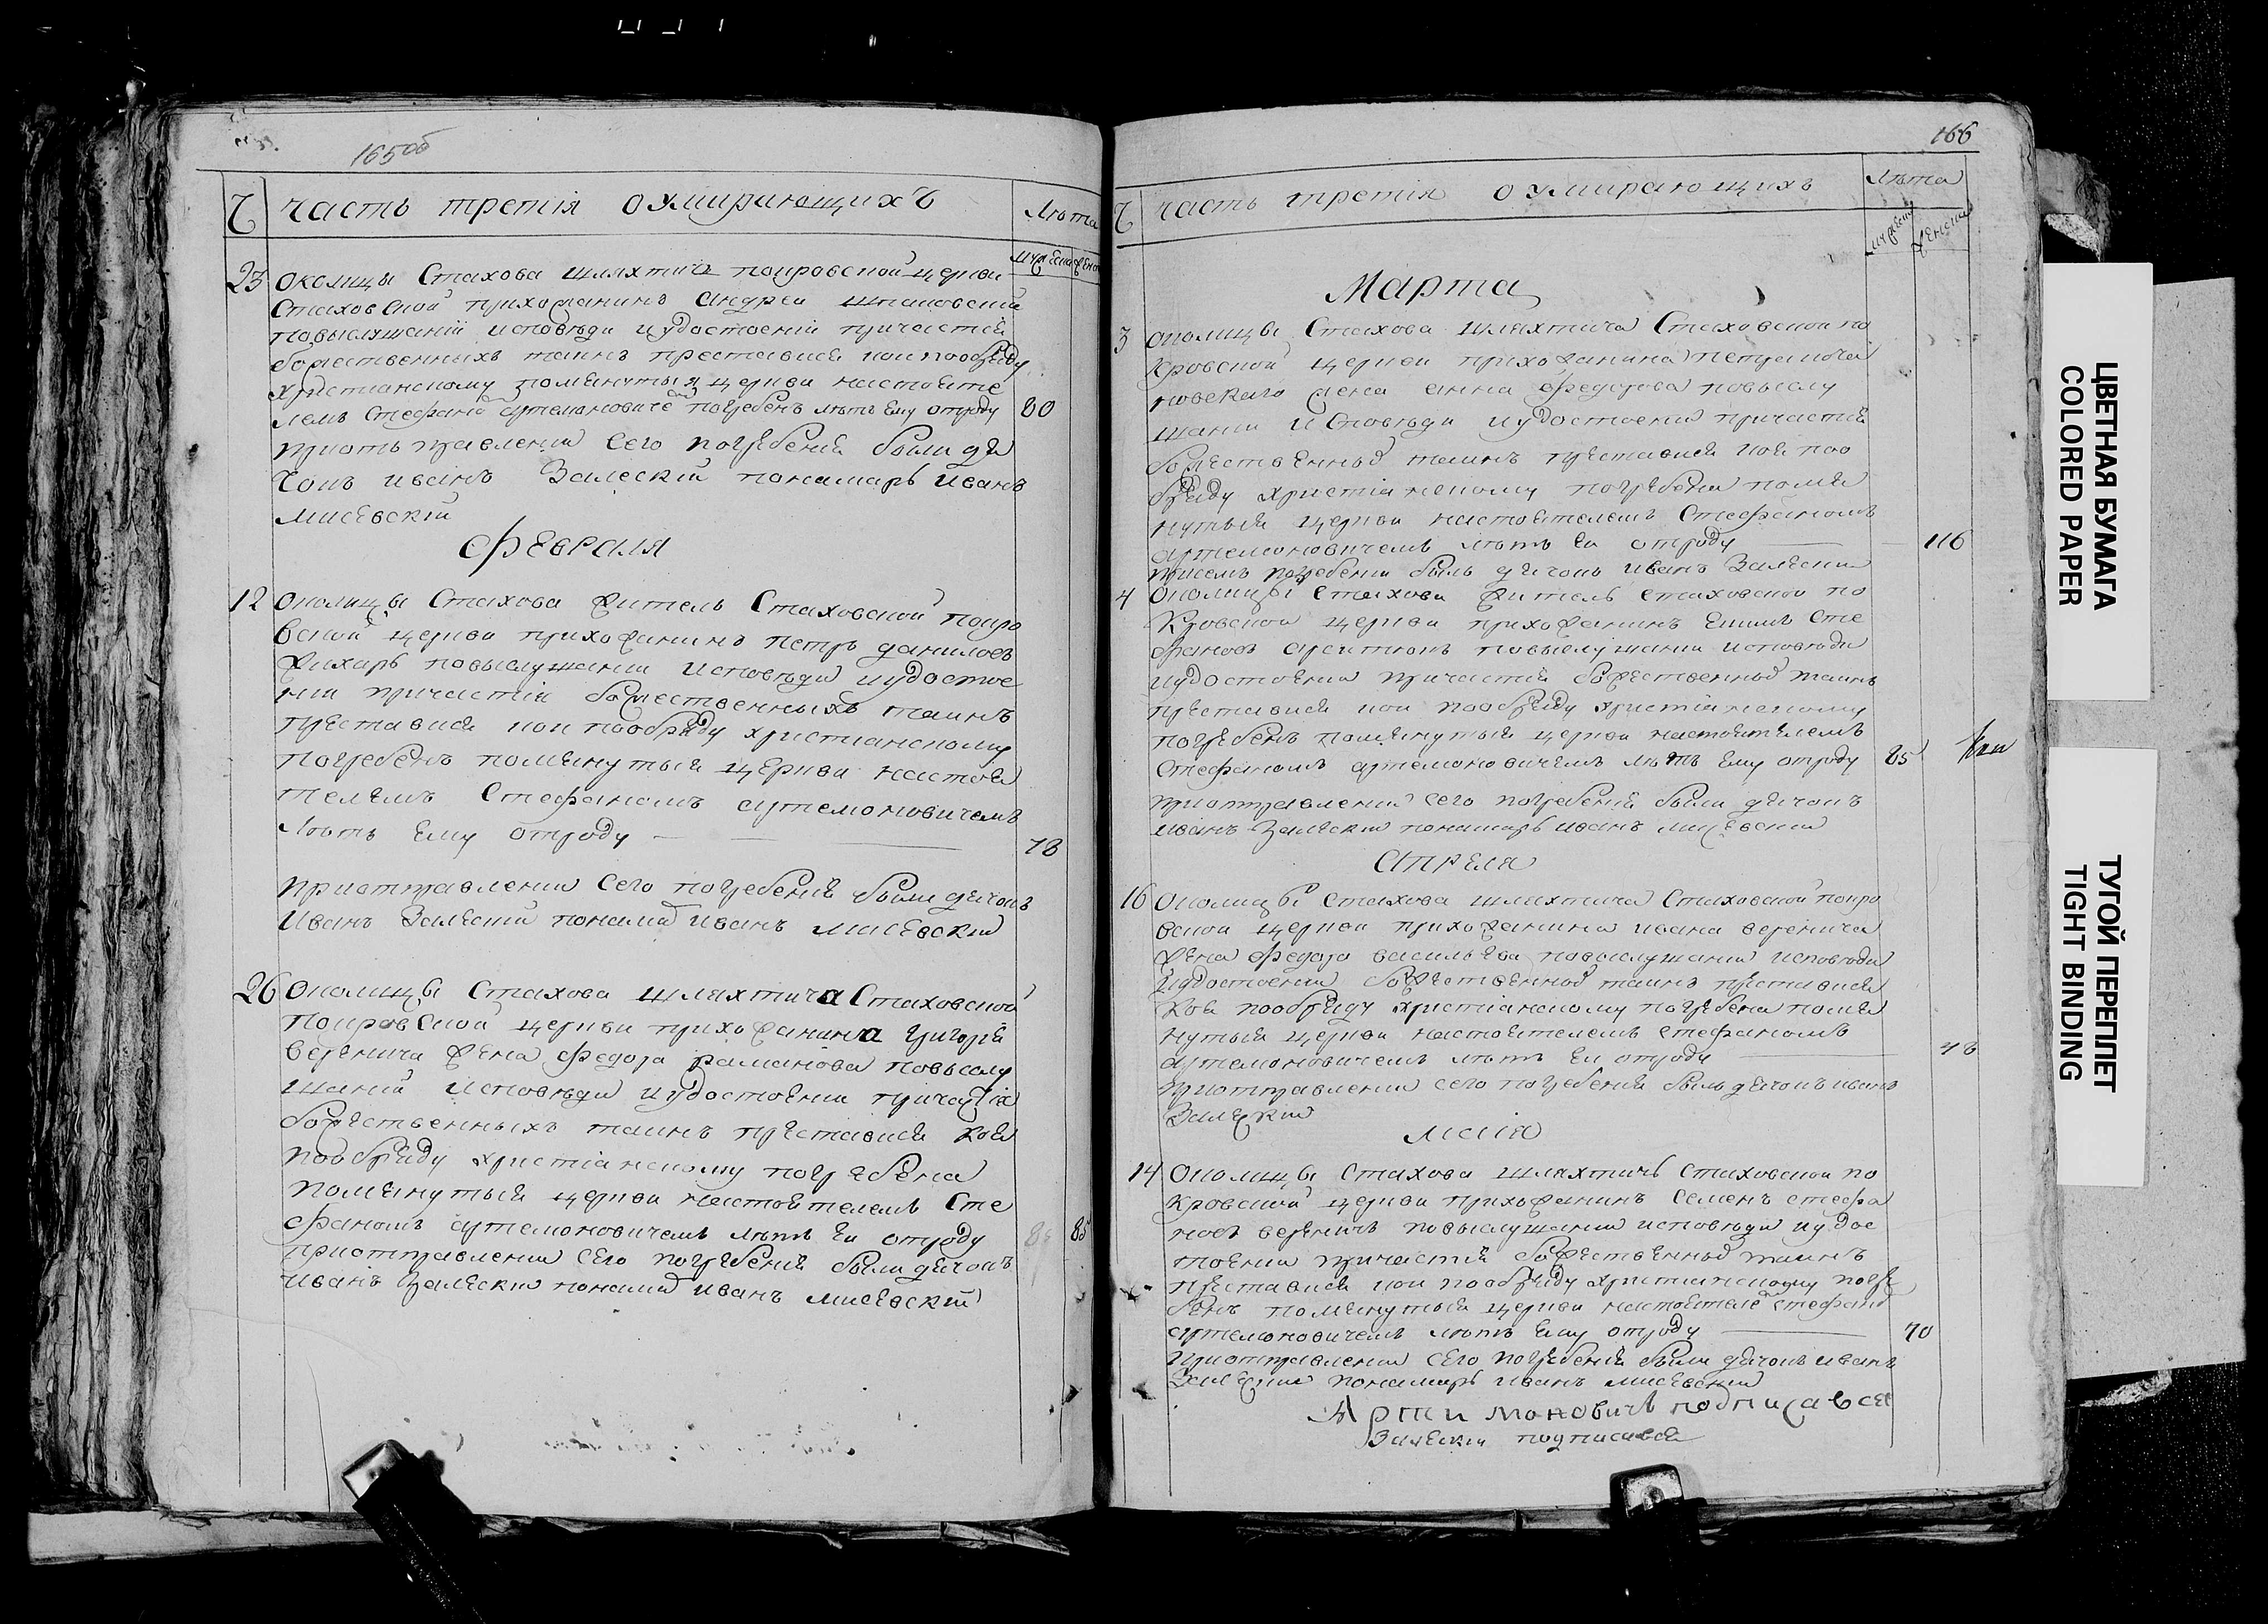 165об
Ч часть третія о умирающихъ Лѣта
23 околицы Стахова шляхтичъ покровской церкви
Стаховской прихожанинъ Андрей
повыслушаніи исповѣди иудостоеніи причастія
божественныхъ таинъ преставися кои пообряду
христіанскому помянутыя церкви настояте
лемъ Стефано Артемоновиче погребенъ лѣтъ ему отроду 80
приотправленіи сего погребенія были дя
чокъ иванъ Залескій понамарь иванъ
Мисевскій
Февраля
12 Околицы Стахова житель Стаховской покро
вской церкви прихожанинъ петръ данилов
Жихарь повыслушаніи исповѣди иудостое
ніи причастія божественныхъ таинъ
преставися кои пообряду христианскому
погребенъ помянутыя церкви настоя
телемъ Стефаномъ артемоновичемъ
Лѣтъ ему отроду 78
приотправленіи сего погребенія были дячокъ
Иванъ Залескій понама иванъ Мисевскій
26 Околицы Стахова шляхтича Стаховской
покровской церкви прихожанина григорія
веренича жена федора раманова повыслу
шаніи исповѣди иудостоеніи причастія
божественныхъ таинъ преставися коя
пообряду христіанскому погребена
помянутыя церкви настоятелемъ Сте
фаномъ артемоновичемъ лѣтъ ей отроду 85
приотправленіи сего погребенія были дячокъ
иванъ Залескій понама иванъ мисевскій
166
Ч часть третія о умирающихъ Лѣта
Марта
3 околицы Стахова шляхтича Стаховской по
кровской церкви прихожанина петра
жена анна федорова повыслу
шаніи исповѣди иудостоеніи причастія
божественны таинъ преставися коя поо
бряду христіанскому погребена помя
нутыя церкви настоятелемъ Стефаномъ
артемоновичемъ лѣтъ ей отроду 116
присемъ погребеніи былъ дячокъ иванъ Залескій
4 Околицы Стахова житель стаховской по
кровской церкви прихожанинъ Сте
фановъ повыслушаніи исповѣди
иудостоеніи причастія божественны таинъ
преставися кои пообряду христіанскому
погребенъ помянутыя церкви настоятелемъ
Стефаномъ артемоновичемъ лѣтъ ему отроду 85
приотправленіи сего погребенія были дячокъ
иванъ Залескій понамарь иванъ мисевскій
Апреля
16 Околицы стахова шляхтича Стаховской покро
вской церкви прихожанина ивана веренича
жена федора васильева повыслушаніи исповѣди
иудостоеніи божественны таинъ преставися
Коя пообряду христіанскому погребена помя
нутыя церкви настоятелемъ стефаномъ
артемоновичемъ лѣтъ ей отроду 48
приотправленіи сего погребенія былъ дячокъ иванъ
Залескій
Маія
14 Околицы Стахова шляхтичъ стаховской по
кровской церкви прихожанинъ Семенъ стефа
новъ вереничъ повыслушаніи исповѣди иудос
тоеніи причастія божественны таинъ
преставися кои пообряду христіанскому погре
бенъ помянутыя церкви настоятеле стефано
артемоновичемъ лѣтъ ему отроду 70
Приотправленіи сего погребенія были дячокъ иванъ
Залескій понамарь иванъ мисевскій
Артимоновичъ подписався
Залескій подписався
ЦВЕТНАЯ БУМАГА
COLORED PAPER
ТУГОЙ ПЕРЕПЛЕТ
TIGHT BINDING